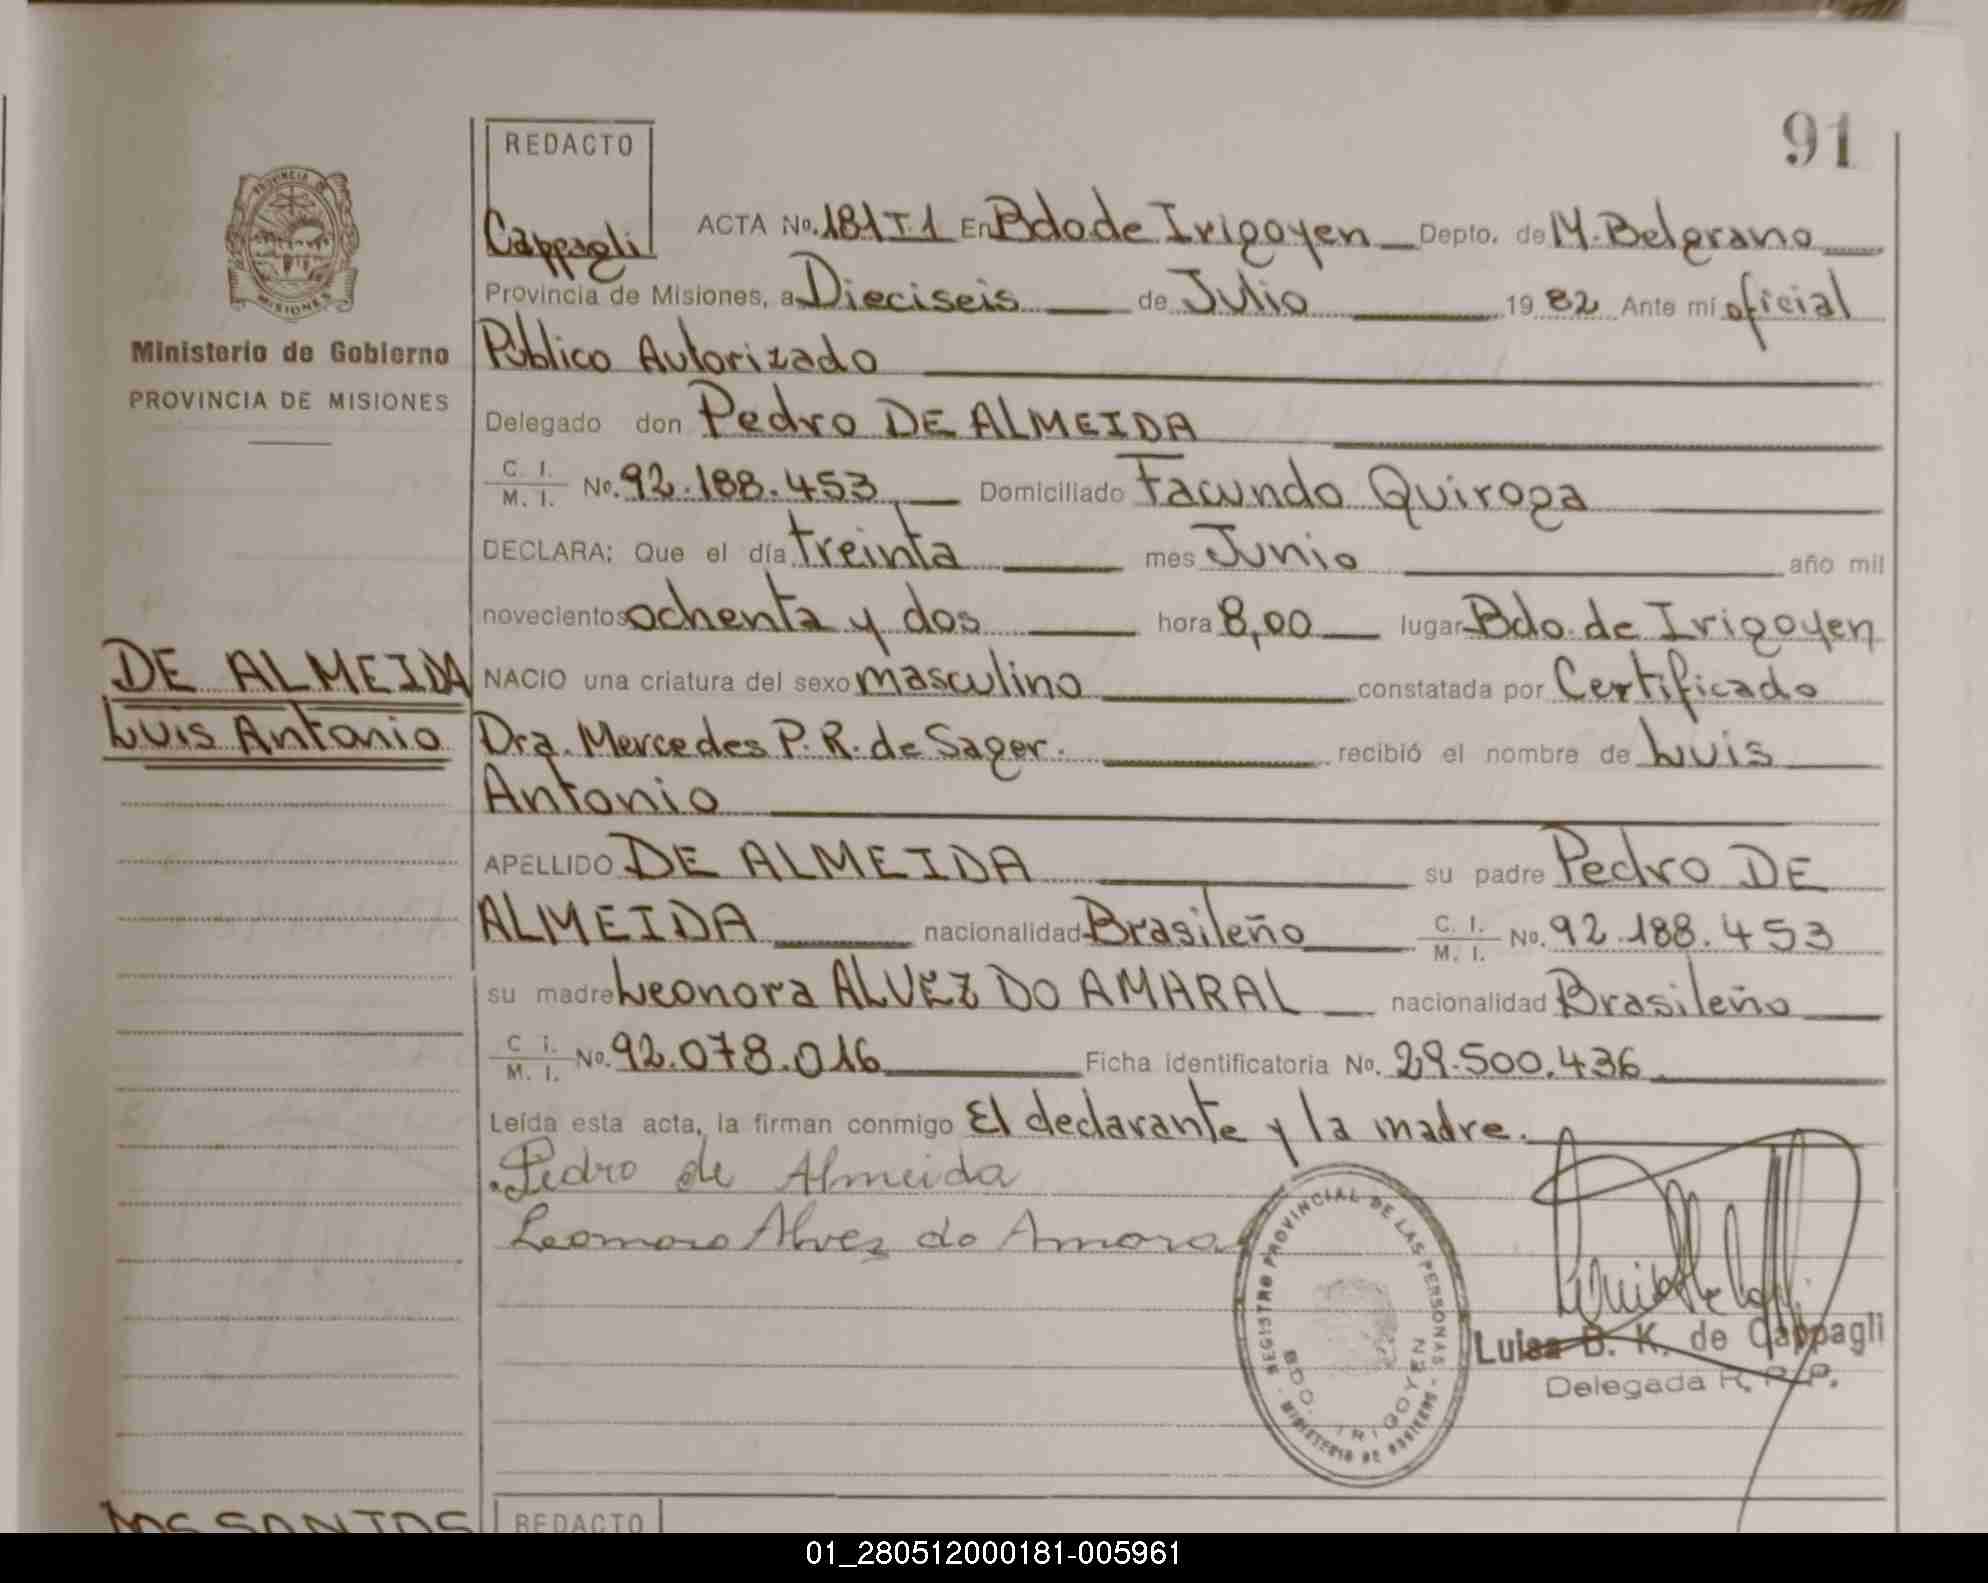 91
REDACTO
Cappagli
PROVINCIA DE
MISIONES
Ministerio de Gobierno
PROVINCIA DE MISIONES
ACTA No. 181 T 1 En Bdo de Irigoyen Depto. de M. Belgrano
Provincia de Misiones, a Dieciseis de Julio 19 82 Ante mí oficial
Público Autorizado
Delegado don Pedro DE ALMEIDA
C. I. M. I. No. 92.188.453 Domiciliado Facundo Quiroga
DECLARA: Que el día treinta mes Junio año mil
novecientos ochenta y dos hora 8,00 lugar Bdo. de Irigoyen
DE ALMEIDA
Luis Antonio
NACIO una criatura del sexo masculino constatada por Certificado
Dra. Mercedes P. R. de Sager. recibió el nombre de Luis
Antonio
APELLIDO DE ALMEIDA su padre Pedro DE
ALMEIDA nacionalidad Brasileño C. I. M. I. No. 92.188.453
su madre Leonora ALVEZ DO AMARAL nacionalidad Brasileño
C i. M. I. No. 92.078.016 Ficha identificatoria No. 29.500.436
Leída esta acta, la firman conmigo El declarante y la madre.
Pedro de Almeida
Leonora Alvez do Amaral
REGISTRO PROVINCIAL DE LAS PERSONAS - MINISTERIO DE GOBIERNO -
BDO. IRIGOYEN
Luisa B. K. de Cappagli
Delegada R. P. P.
DOS SANTOS
REDACTO
01_280512000181-005961